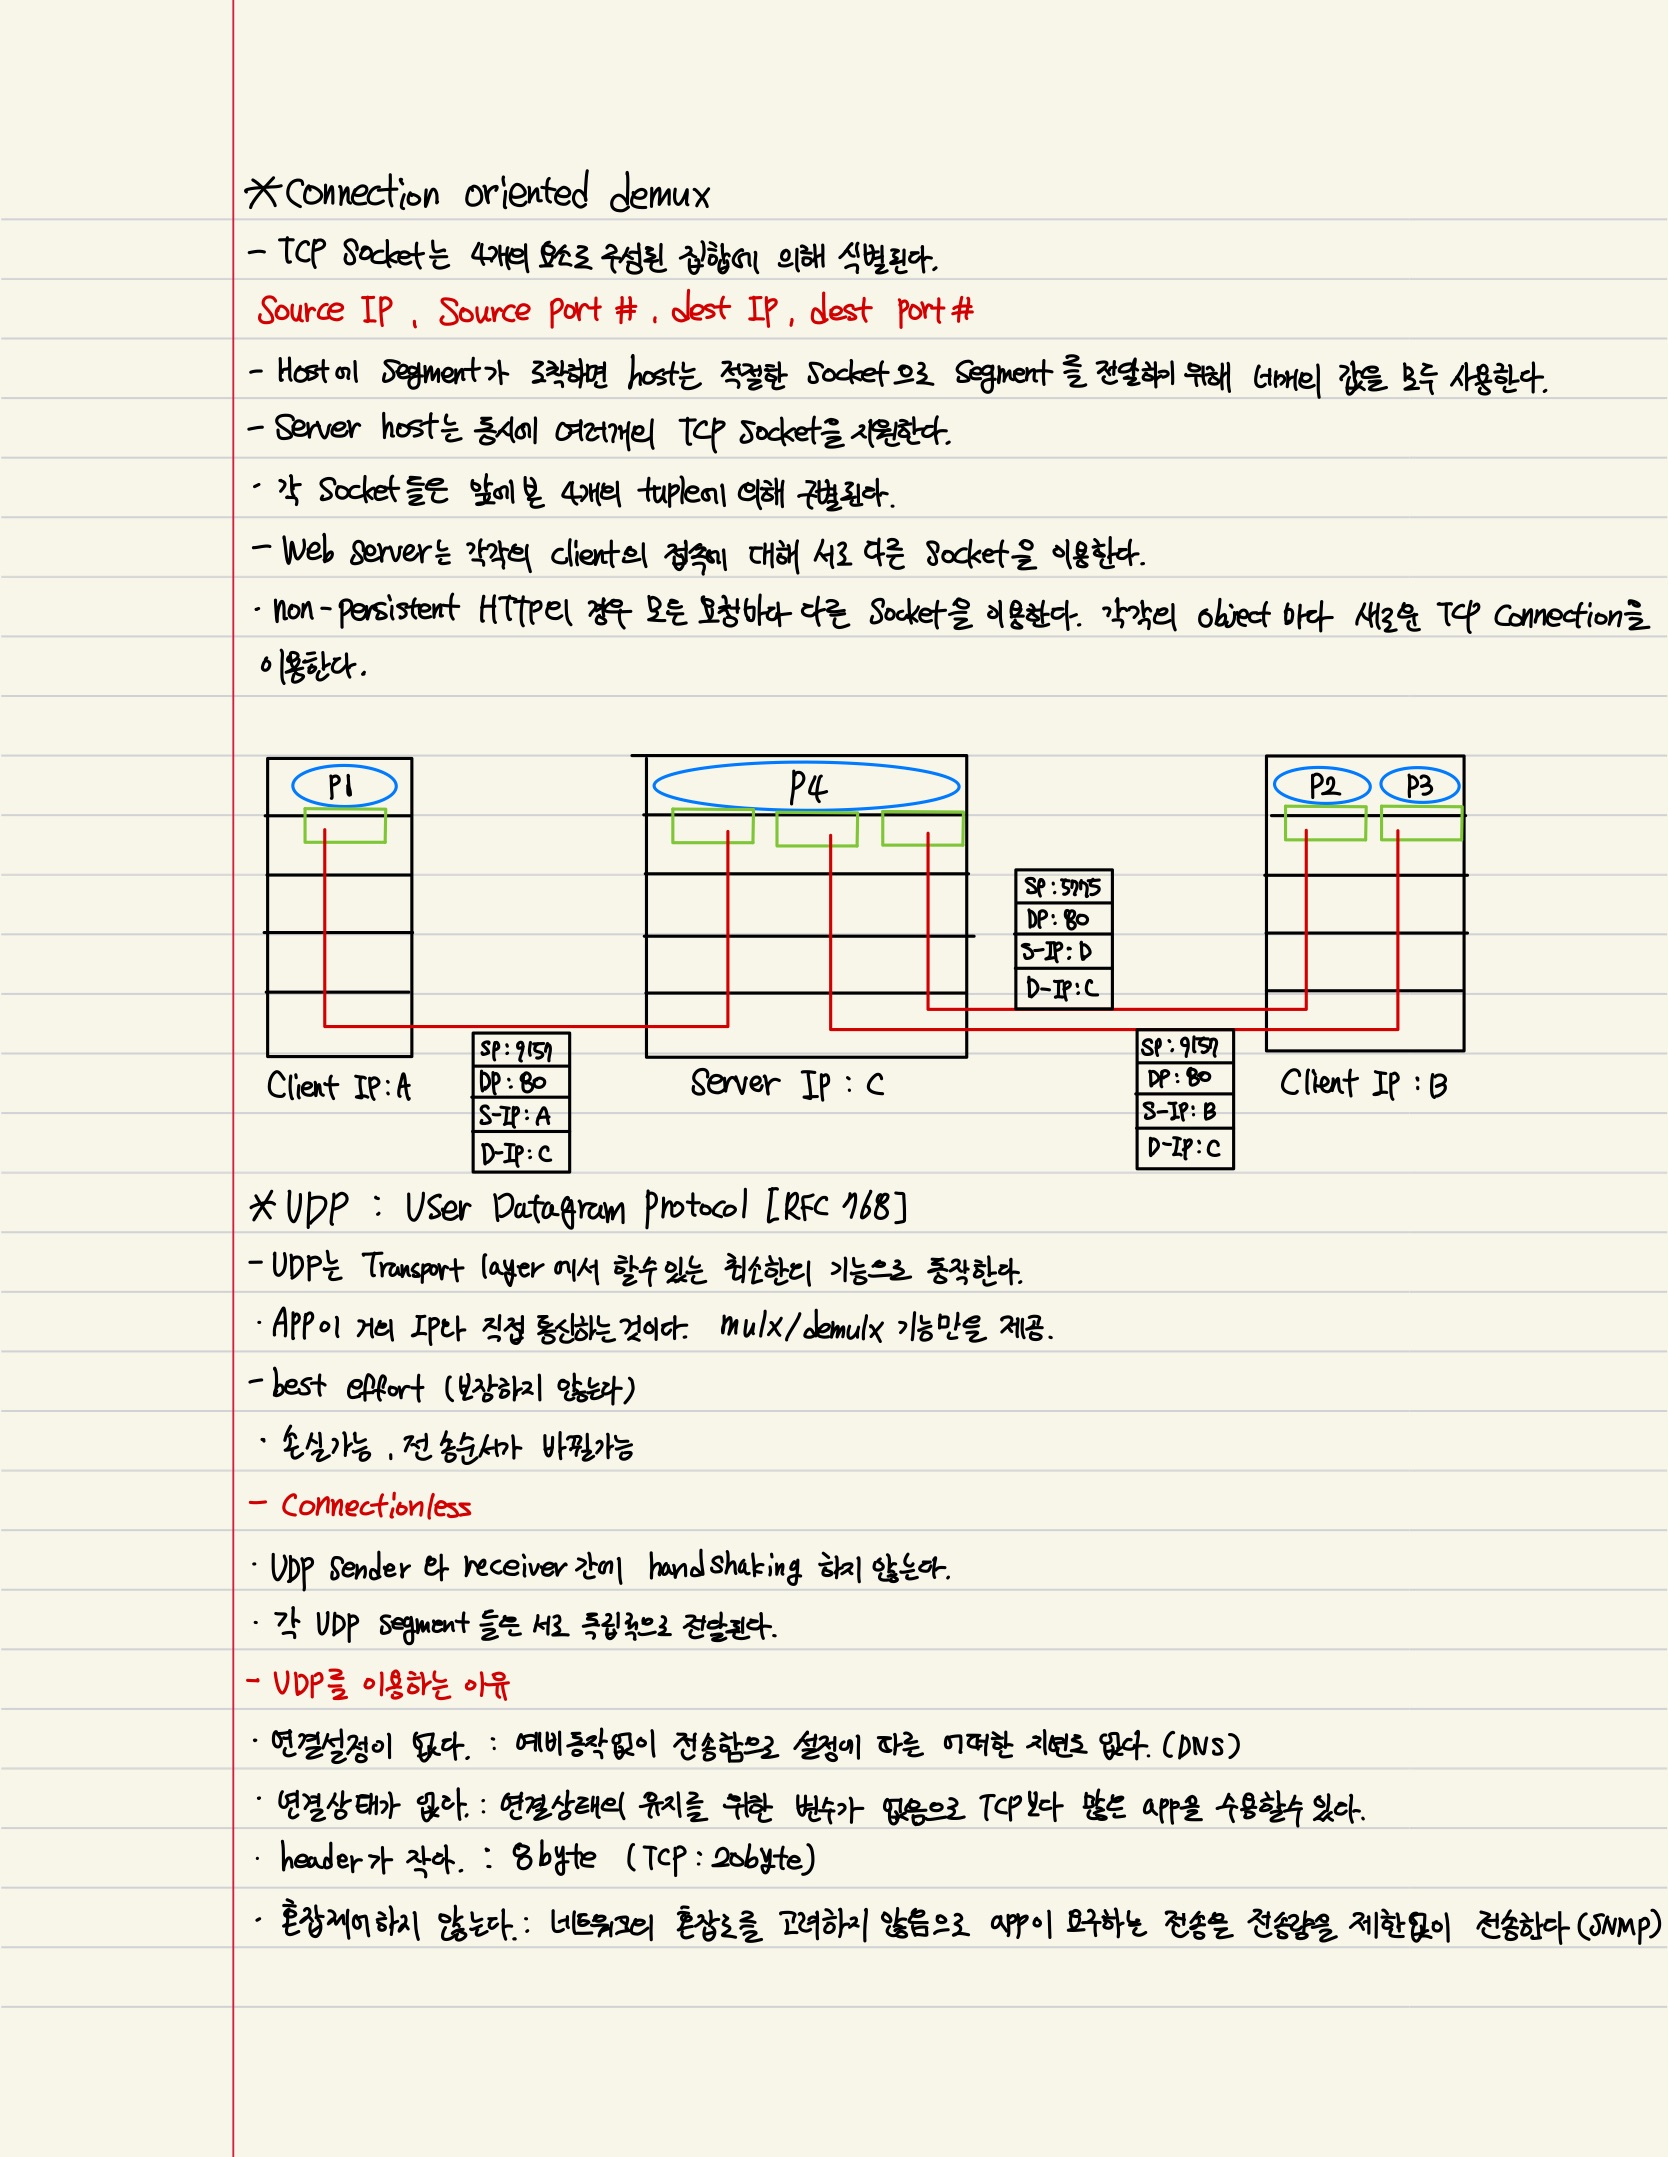 *Connection oriented demux
- TCP Socket는 4개의 요소로 구성된 집합에 의해 식별된다.
Source IP, Source Port #, dest IP, dest port #
- Host에 Segment가 도착하면 host는 적절한 Socket으로 Segment를 전달하기 위해 네개의 값을 모두 사용한다.
- Server host는 동시에 여러개의 TCP Socket을 지원한다.
· 각 Socket들은 앞에 본 4개의 tuple에 의해 구별된다.
- Web Server는 각각의 client의 접속에 대해 서로 다른 Socket을 이용한다.
· non-persistent HTTP의 경우 모든 요청마다 다른 Socket을 이용한다. 각각의 object 마다 새로운 TCP Connection을
이용한다.
P1 P4 P2 P3
SP:5775
DP:80
S-IP:D
D-IP:C
SP:9157
DP:80
S-IP:A
D-IP:C
SP:9157
DP:80
S-IP:B
D-IP:C
Client IP:A Server IP:C Client IP:B
*UDP : User Datagram Protocol [RFC 768]
- UDP는 Transport layer에서 할수있는 최소한의 기능으로 동작한다.
· APP이 거의 IP와 직접 통신하는것이다. mulx/demulx 기능만을 제공.
- best effort (보장하지 않는다)
· 손실가능, 전송순서가 바뀔가능
- Connectionless
· UDP Sender와 receiver간에 handshaking 하지 않는다.
· 각 UDP segment 들은 서로 독립적으로 전달된다.
- UDP를 이용하는 이유
· 연결설정이 없다. : 예비동작없이 전송함으로 설정에 따른 어떠한 지연도 없다. (DNS)
· 연결상태가 없다. : 연결상태의 유지를 위한 변수가 없음으로 TCP보다 많은 app을 수용할수 있다.
· header가 작아. : 8byte (TCP:20byte)
· 혼잡제어하지 않는다. : 네트워크의 혼잡도를 고려하지 않음으로 app이 요구하는 전송을 전송량을 제한없이 전송한다 (SNMP)